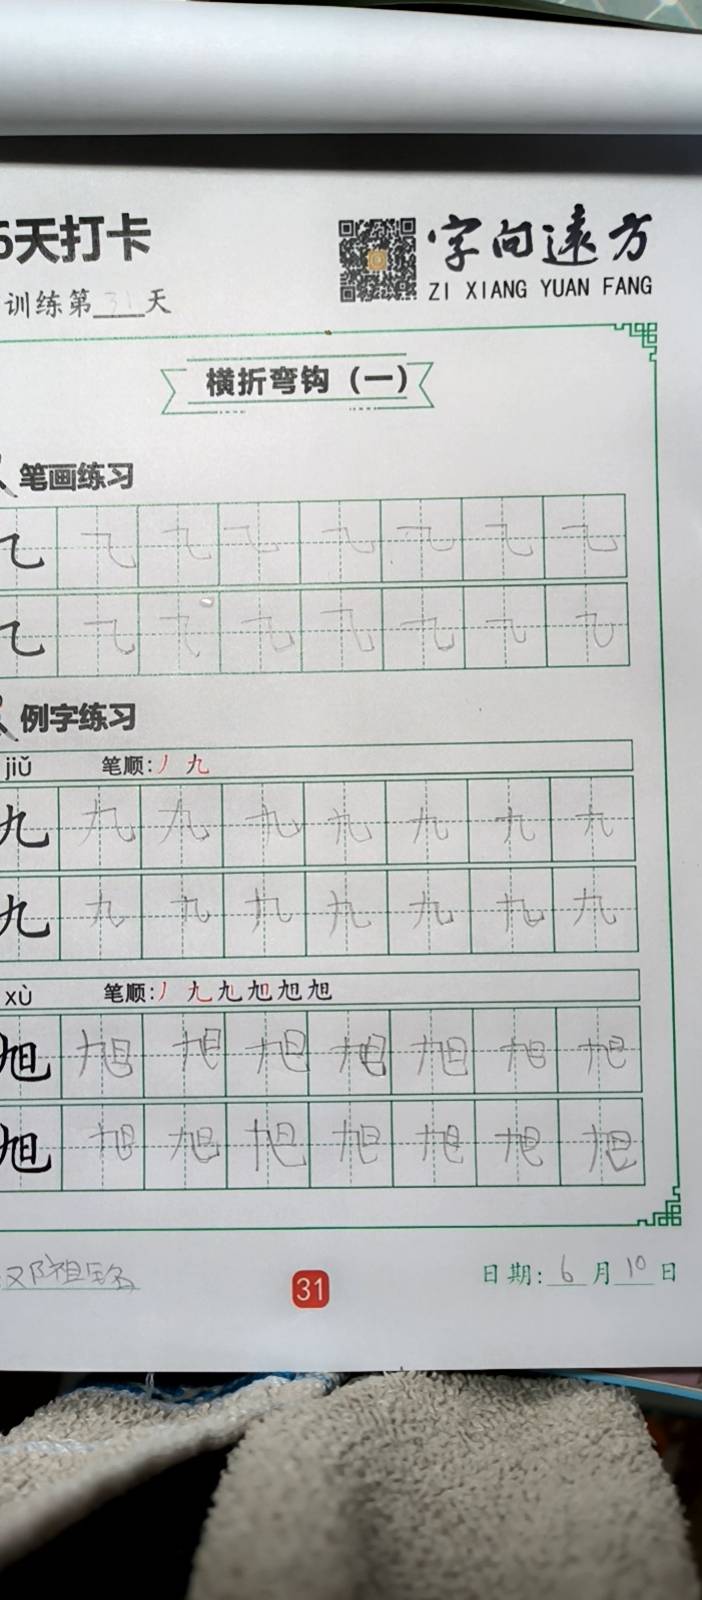 5天打卡
字向遠方
ZI XIANG YUAN FANG
训练第31天
横折弯钩（一）
笔画练习
例字练习
jiǔ 笔顺:丿 九
九 九 九 九 九 九 九 九
九 九 九 九 九 九 九 九
xù 笔顺:丿 九 九 旭 旭 旭
旭 旭 旭 旭 旭 旭 旭 旭
旭 旭 旭 旭 旭 旭 旭 旭
邓祖铭
31
日期:6月10日